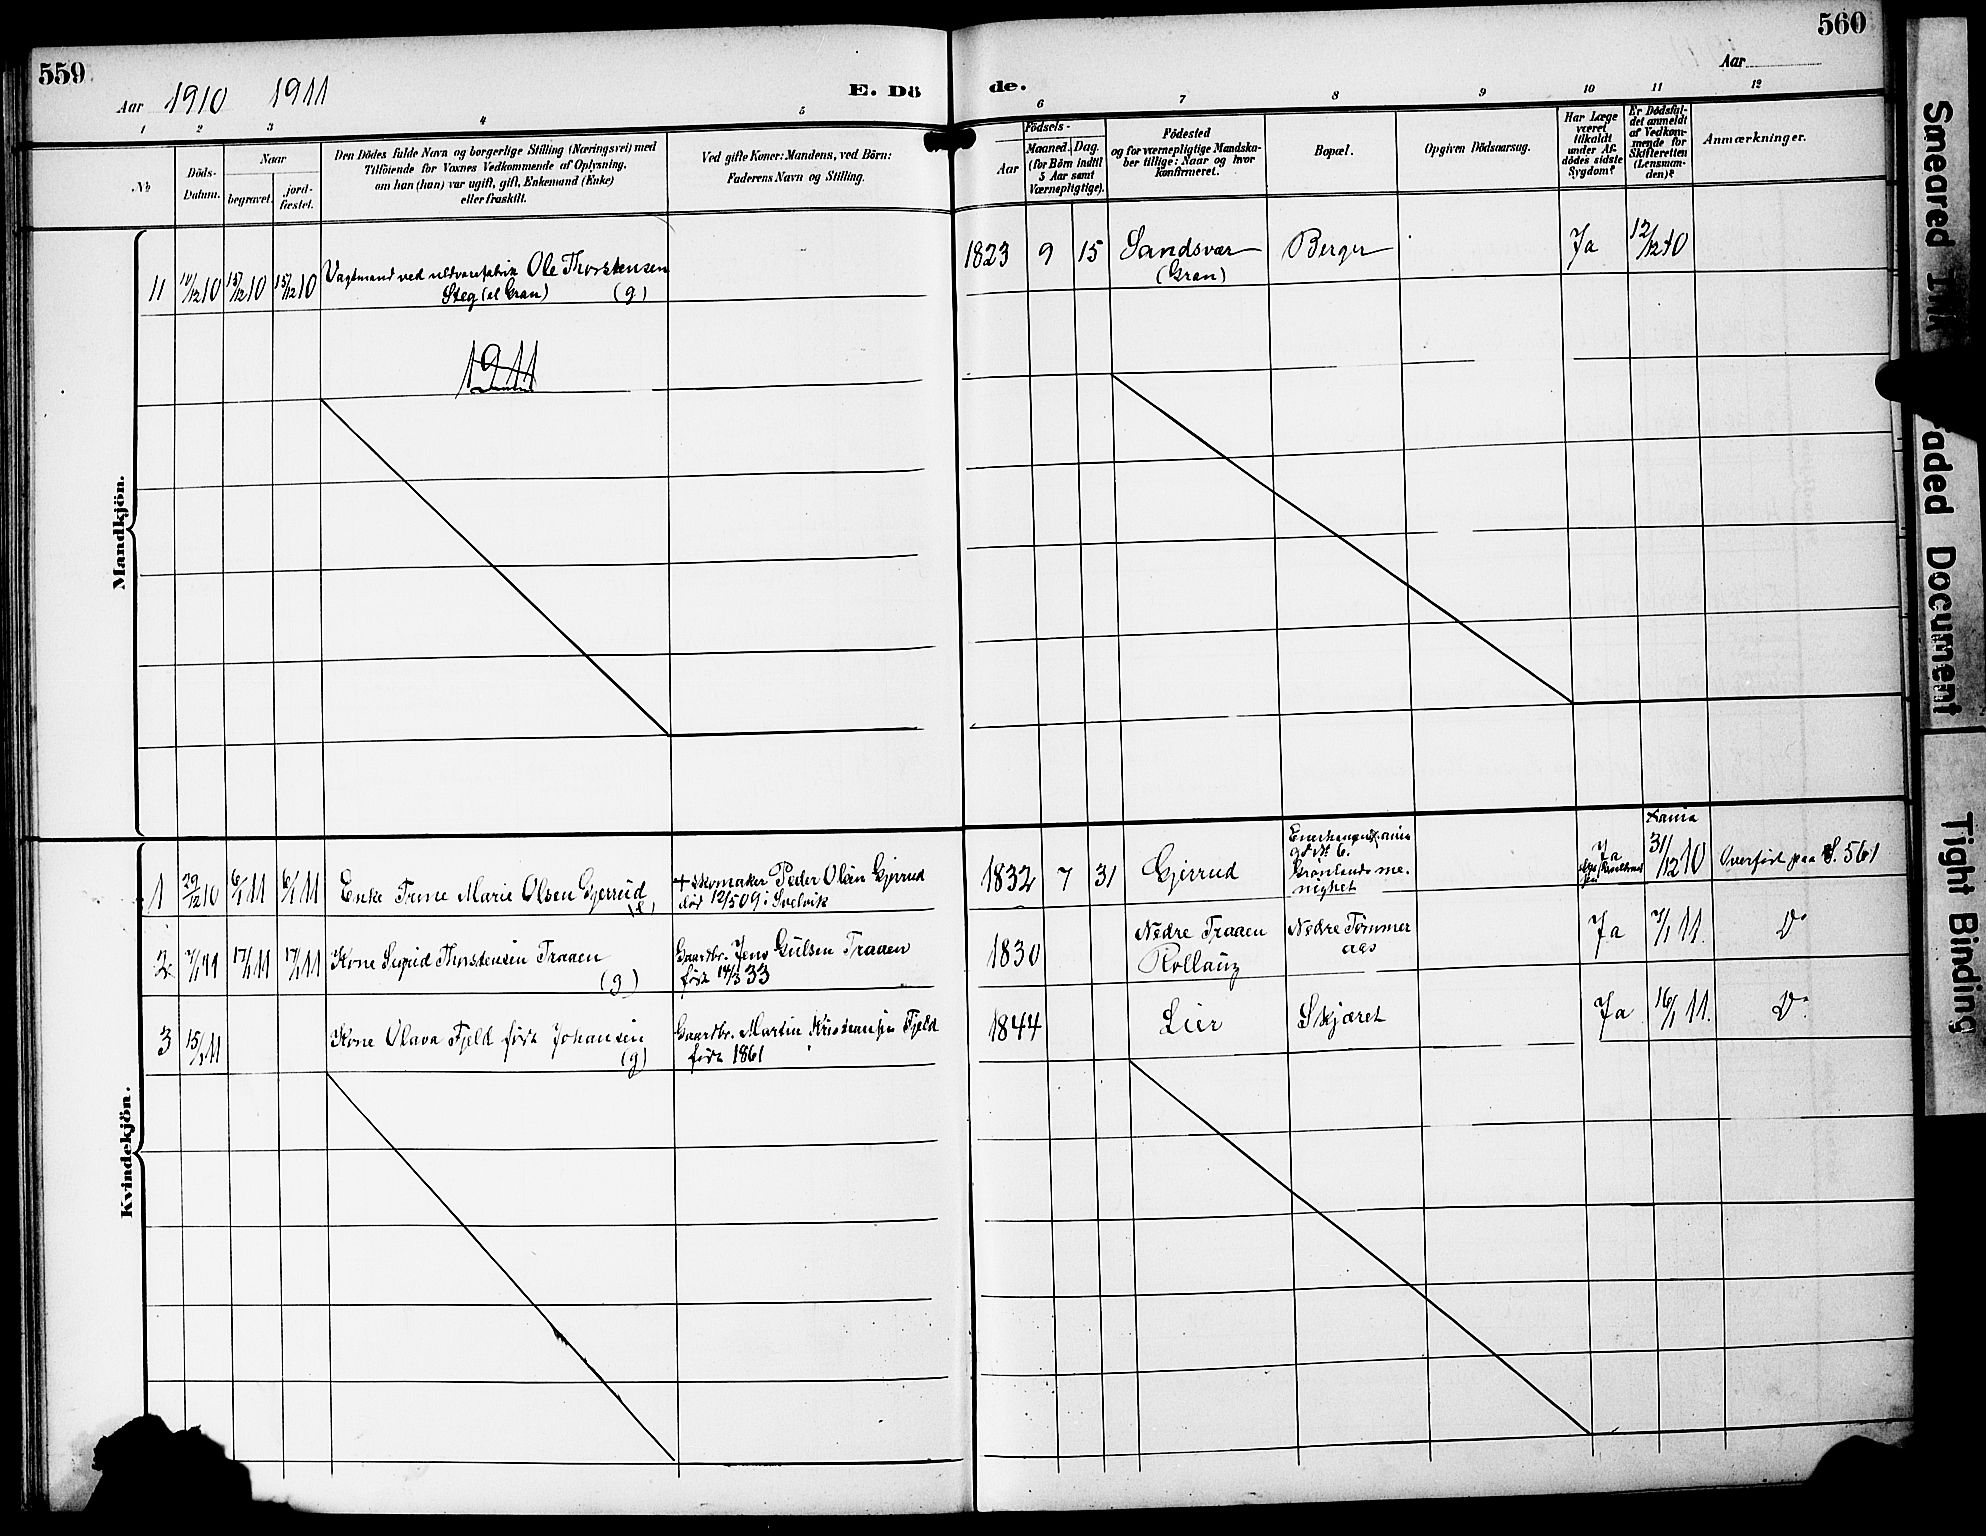 559
Aar 1910 1911
E. Dö
de.
560
Aar
1 2 3 4 5 6 7 8 9 10 11 12
№
Döds-
Datum.
Naar
begravet.
jord-
fæstet.
Den Dödes fulde Navn og borgerlige Stilling (Næringsvei) med
Tilföiende for Voxnes Vedkommende af Oplysning,
om han (hun) var ugift, gift, Enkemand (Enke)
eller fraskilt.
Ved gifte Koner: Mandens, ved Börn:
Faderens Navn og Stilling.
Födsels-
Aar
Maaned. Dag.
(for Börn indtil
5 Aar samt
Værnepligtige).
Födested
og for værnepligtige Mandska-
ber tillige: Naar og hvor
konfirmeret.
Bopæl.
Opgiven Dödsaarsag.
Har Læge
været
tilkaldt
under Af-
dödes sidste
Sygdom?
Er Dödsfal-
det anmeldt
af Vedkom-
mende for
Skifteretten
(Lensman-
den)?
Anmærkninger.
Mandkjön.
11 10/12 10 15/12 10 15/12 10 Vagtmand ved uldvarefabrik Ole Thorstensen
Steg (al Gran) (g)
1823 9 15 Sandsvær
(Gran)
Berger Ja 12/12 10
1911
Kvindekjön.
1 29/12 10 6/1 11 6/1 11 Enke Trine Marie Olsen Gjerrud
+ Skomaker Peder Olsen Gjerrud
död 12/5 09 i Svelvik
1832 7 31 Gjerrud
gd № 6.
Grønlands me-
nighet
Ja
31/12 10 Overført paa S. 561
2 7/1 11 17/1 11 17/1 11 Kone Sigrid Thorstensen Traaen
(g)
Gaardbr. Jens Gulsen Traaen
født 14/3 33
1830 Nedre Traaen
Rollaug
Nedre Tømmer
aas
Ja 7/1 11. Do
3 15/1 11 Kone Olava Fjeld født Johansen
(g)
Gaardbr. Martin Kristiansen Fjeld
født 1861
1844 Lier Skjæret Ja 16/1 11. Do
Smeared Ink
Faded Document
Tight Binding